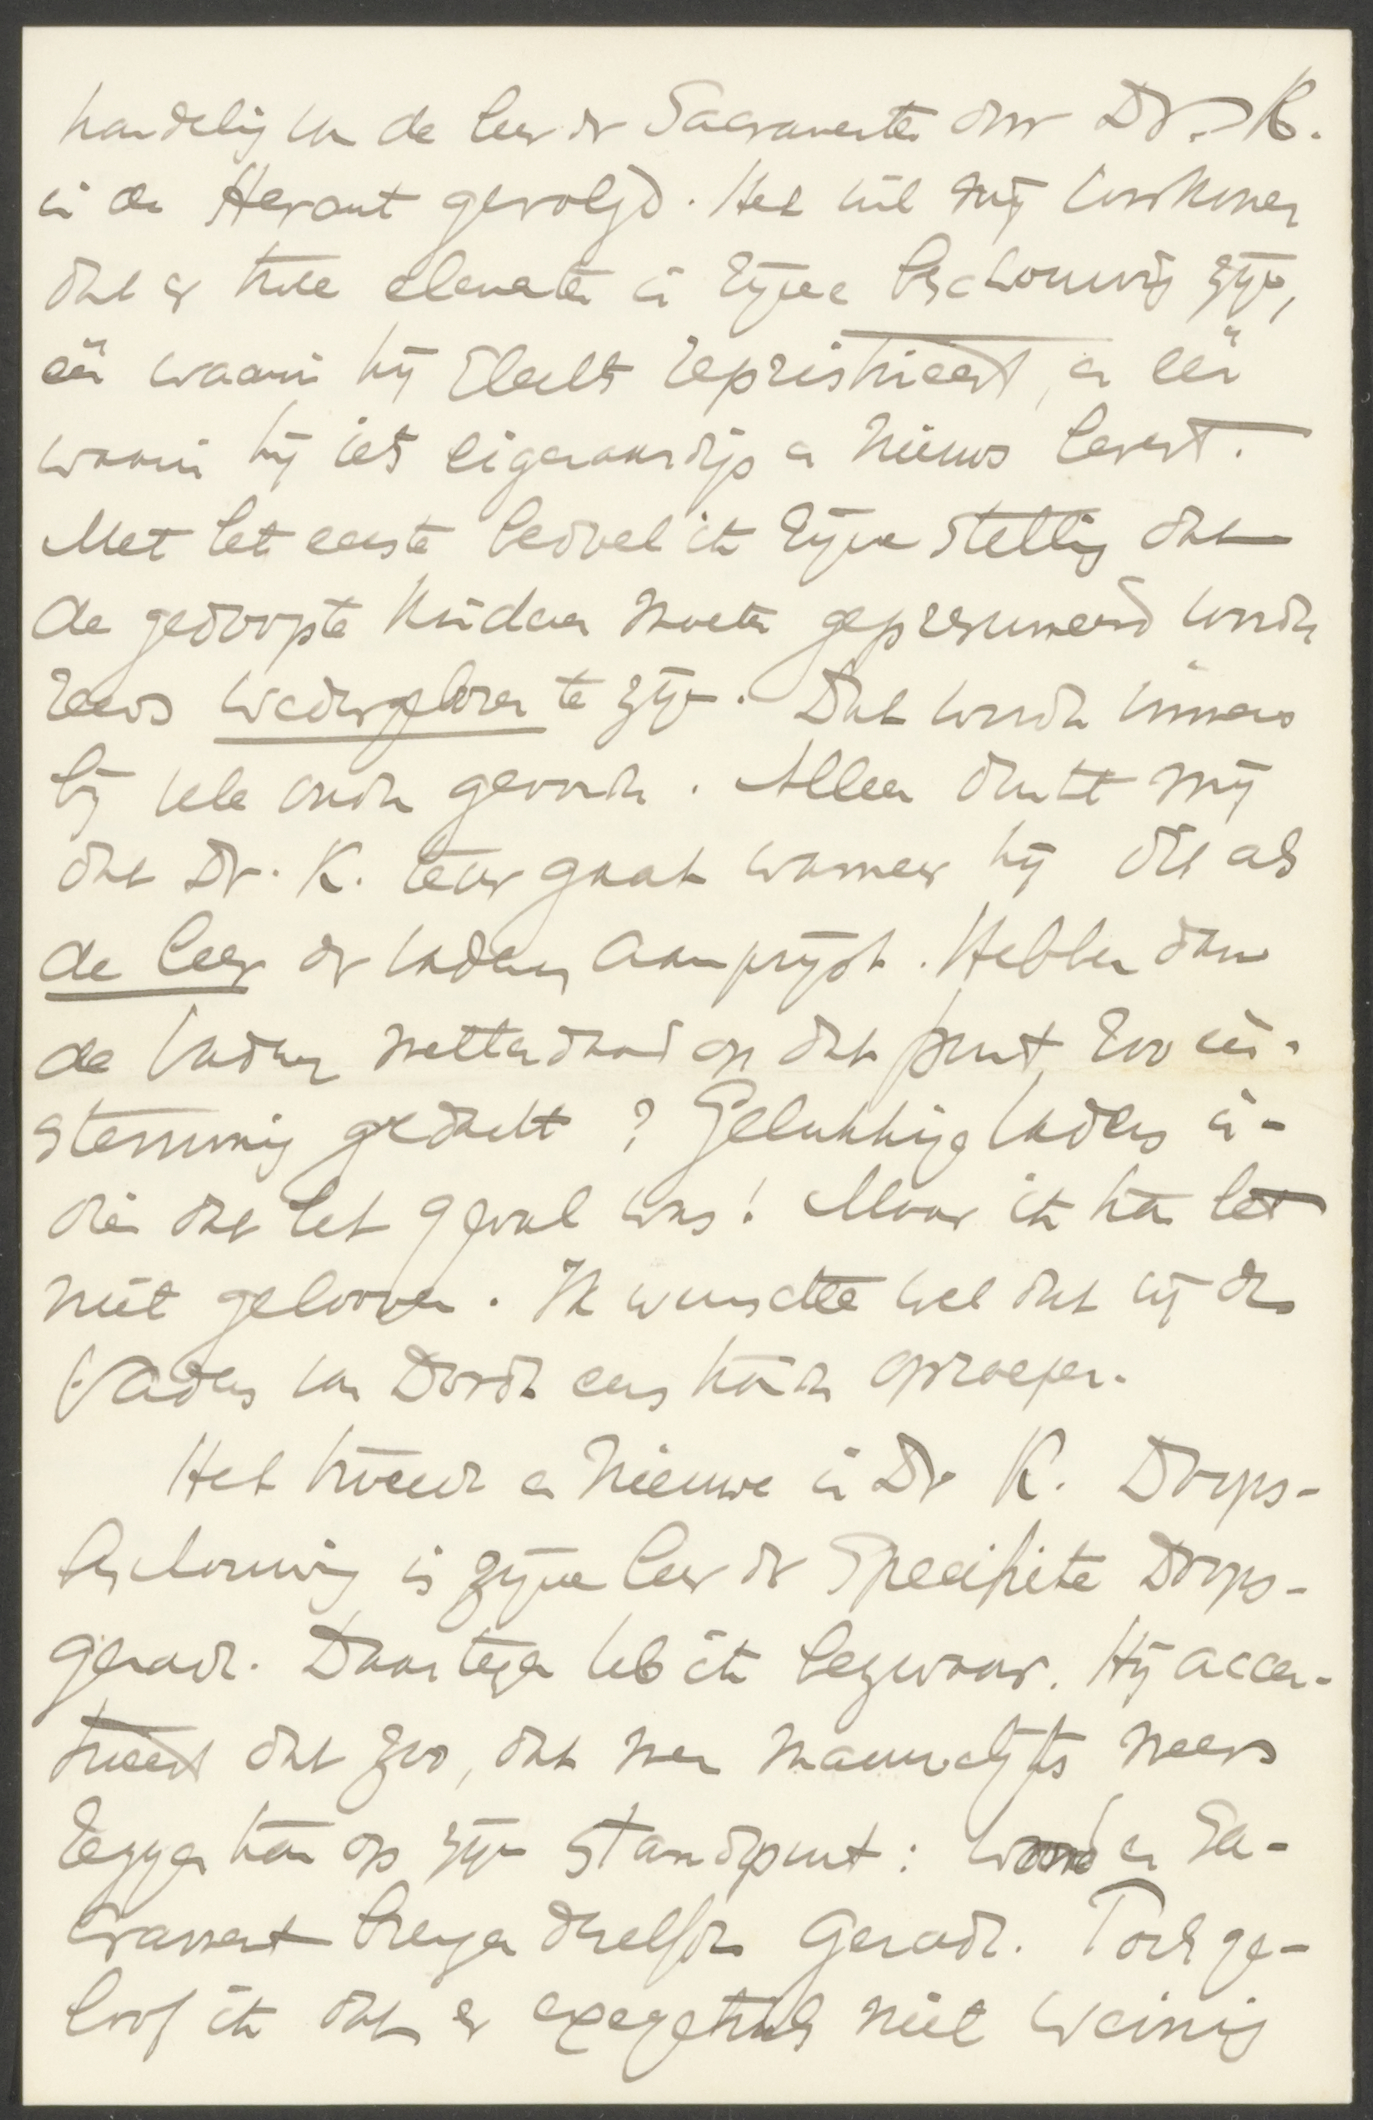 handeling van de leer der Sacramenten door Dr. K.
in de Heraut gevolgd. Het wil mij voorkomen
dat er twee elementen in zijne beschouwing zijn,
één waarin hij slechts repristineert, en één
waarin hij iets eigenaardigs en nieuws levert.
Met het eerste bedoel ik zijne stelling dat
de gedoopte kinderen moeten gepresumeerd worden
reeds wedergeboren te zijn. Dat wordt immers
bij vele ouden gevonden. Alleen dunkt mij
dat Dr. K. te ver gaat wanneer hij dit als
de leer der vaderen aanprijst. Hebben dan
de vaderen metterdaad op dat punt zoo een-
stemmig gedacht? Gelukkige vaders in-
dien dat het geval was! Maar ik kan het
niet gelooven. Ik wenschte wel dat wij de
Vaders van Dordt eens konden oproepen.
Het tweede en nieuwe in Dr K. Doops-
beschouwing is zijne leer der specifieke Doops-
genade. Daartegen heb ik bezwaar. Hij accen-
tueert dat zoo, dat men nauwelijks meer
zeggen kan op zijn standpunt: woord en Sa-
crament brengen dezelfde genade. Toch ge-
loof ik dat er exegetisch niet weinig